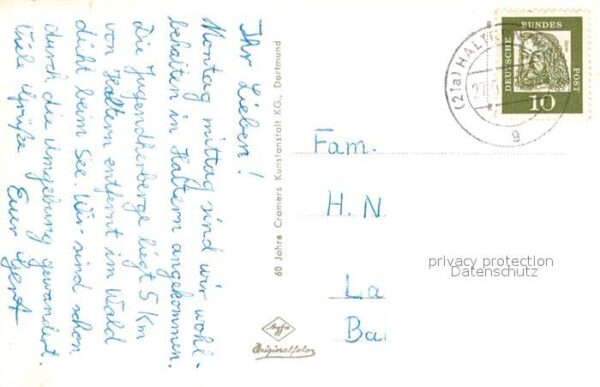 Ihr Lieben!
Montag mittag sind wir wohl-
behalten in Haltern angekommen.
Die Jugendherberge liegt 5 km
von Haltern entfernt im Wald
dicht beim See. Wir sind schon
durch die Umgebung gewandert.
Viele Grüße Euer Gert
60 Jahre Cramers Kunstanstalt KG., Dortmund
Agfa
Originalfoto
(21a) HALT
g
DEUTSCHE BUNDES POST
10
Fam.
H. N
La
Ba
privacy protection
Datenschutz